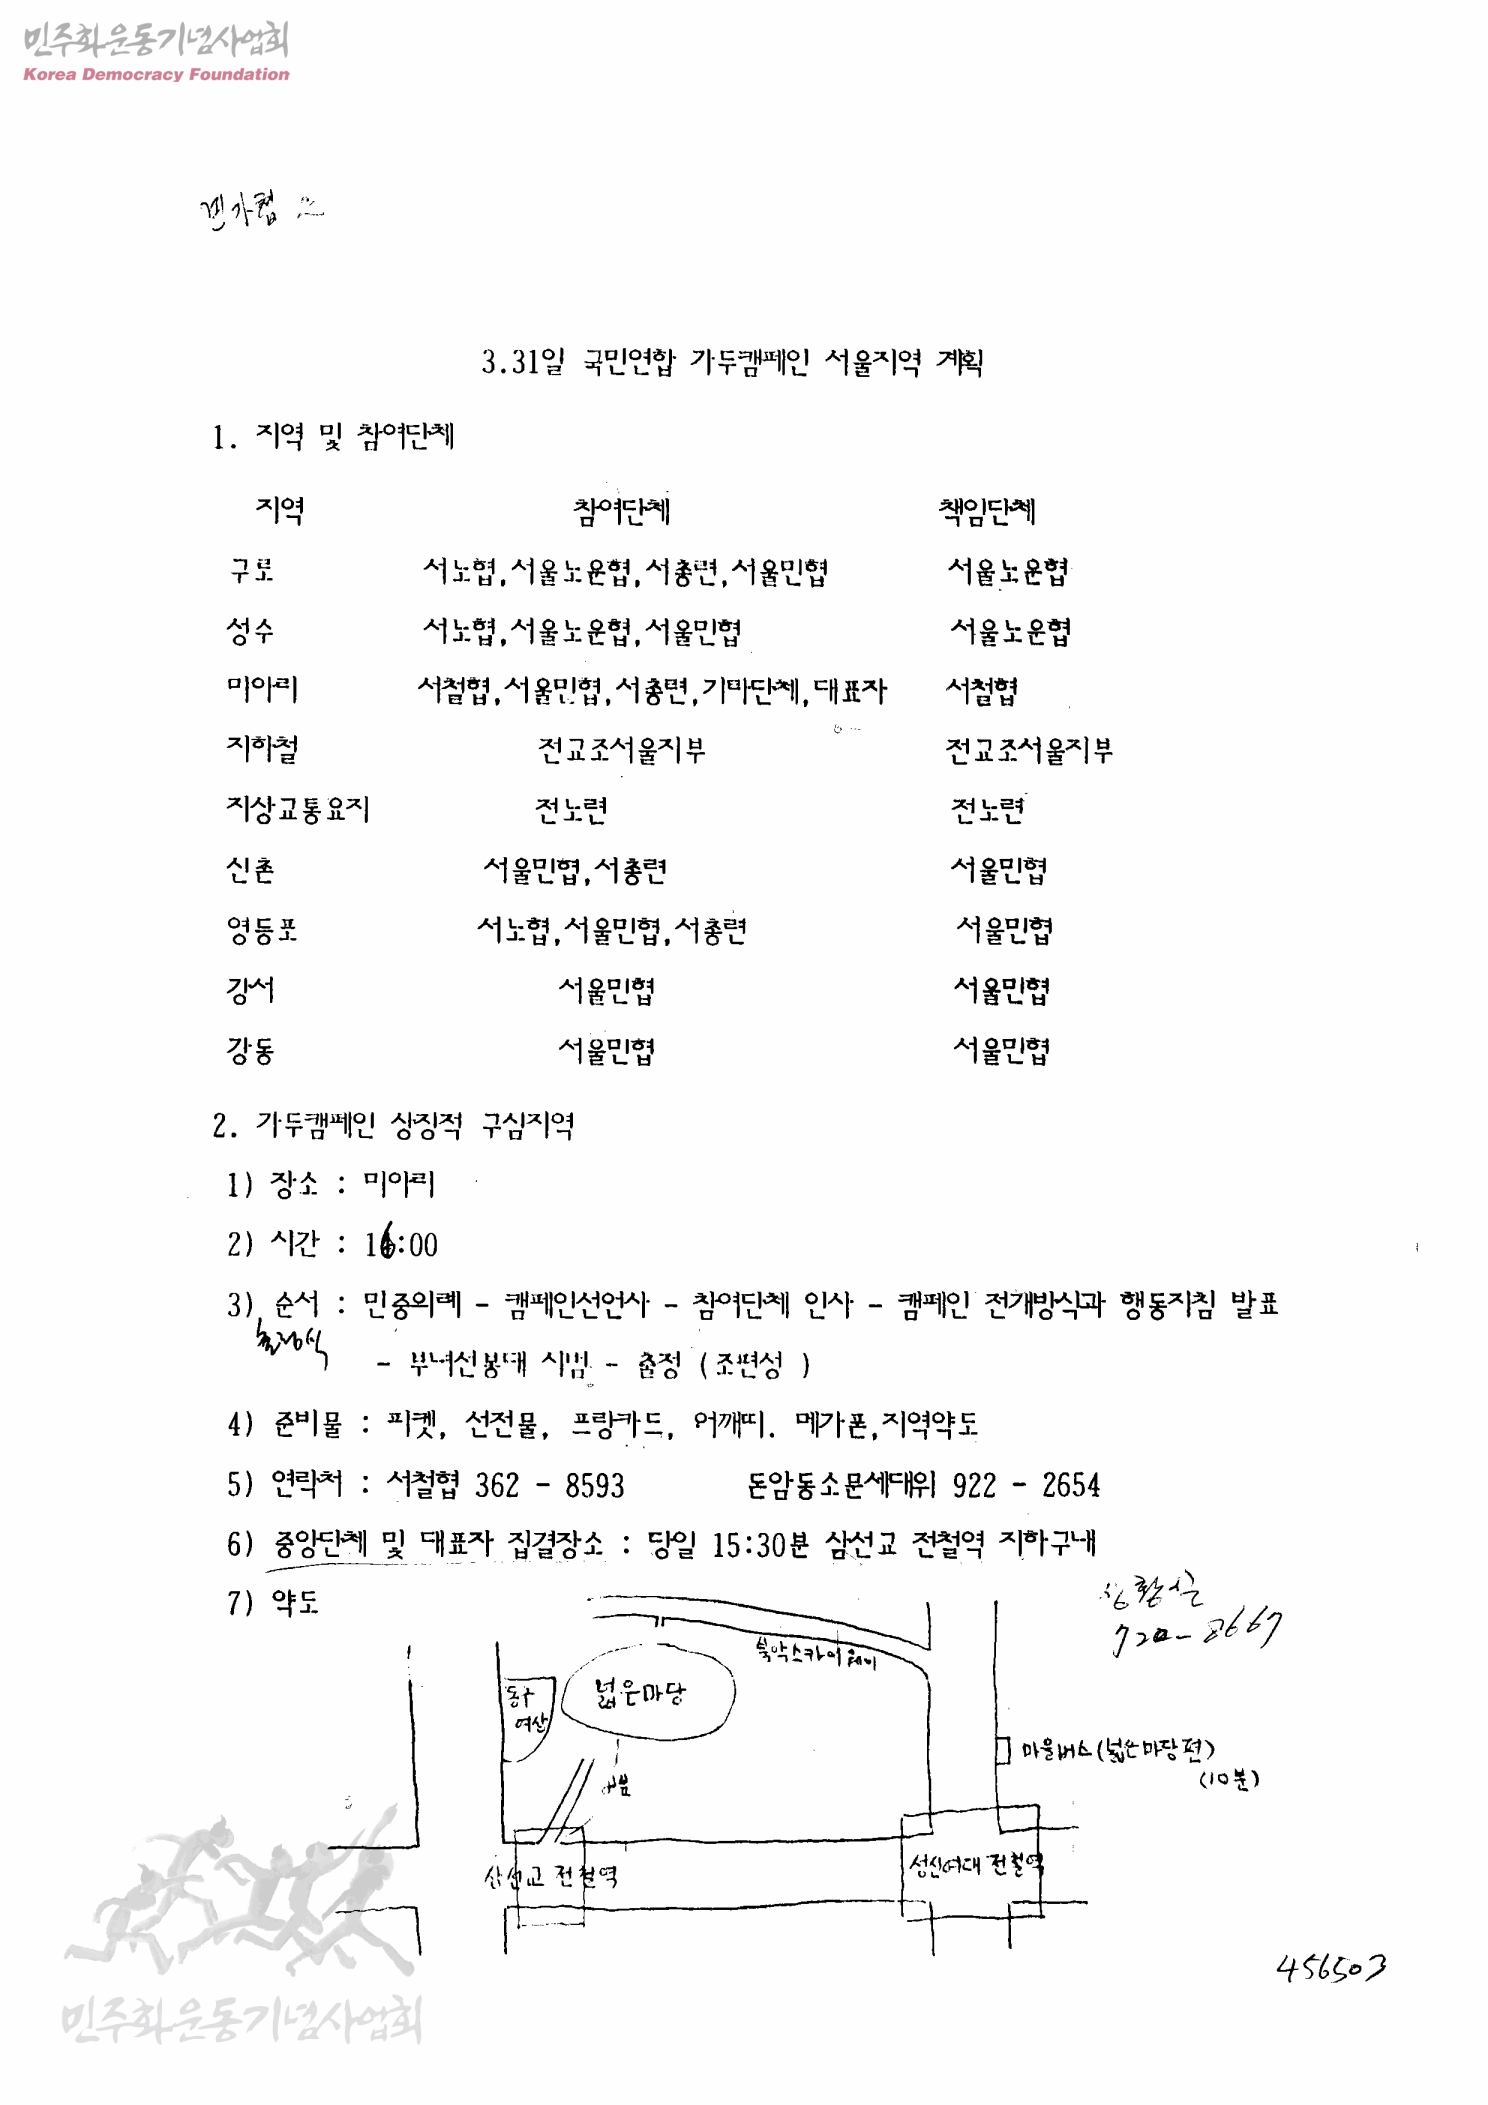 민주화운동기념사업회
Korea Democracy Foundation
민가협
3.31일 국민연합 가두캠페인 서울지역 계획
1. 지역 및 참여단체
지역 참여단체 책임단체
구로 서노협,서울노운협,서총련,서울민협 서울노운협
성수 서노협,서울노운협,서울민협 서울노운협
미아리 서철협,서울민협,서총련,기타단체,대표자 서철협
지하철 전교조서울지부 전교조서울지부
지상교통요지 전노련 전노련
신촌 서울민협,서총련 서울민협
영등포 서노협,서울민협,서총련 서울민협
강서 서울민협 서울민협
강동 서울민협 서울민협
2. 가두캠페인 상징적 구심지역
1) 장소 : 미아리
2) 시간 : 16:00
3) 순서 : 민중의례 - 캠페인선언사 - 참여단체 인사 - 캠페인 전개방식과 행동지침 발표
출정식
- 부녀선봉대 시범 - 출정 (조편성 )
4) 준비물 : 피켓, 선전물, 프랑카드, 어깨띠. 메가폰,지역약도
5) 연락처 : 서철협 362 - 8593 돈암동소문세대위 922 - 2654
6) 중앙단체 및 대표자 집결장소 : 당일 15:30분 삼선교 전철역 지하구내
7) 약도
상황실
720-8667
북악스카이웨이
동구
여상
넓은마당
마을버스(넓은마당편)
(10분)
삼선교 전철역
성신여대 전철역
456503
민주화운동기념사업회